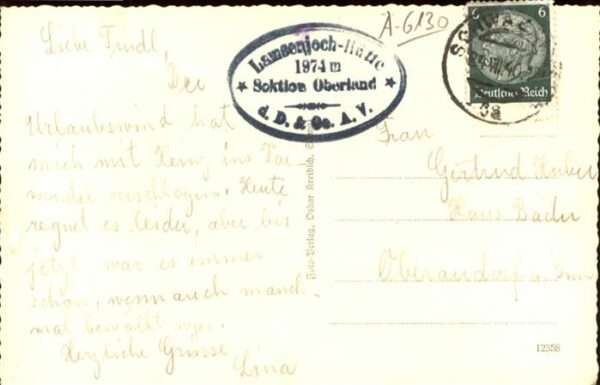 Liebe Trudl,
Der
Urlaubswind hat
mich mit Heinz ins Ka-
wendel verschlagen. Heute
regnet es leider, aber bis
jetzt war es immer
schön, wenn auch manch-
mal bewölkt war.
Herzliche Grüsse
Lina
Lamsenjoch-Hütte
1974 m
Sektion Oberland
d. D. & Oe. A. V.
A-6130
SCHWAZ
6
Deutsches Reich
Foto-Verlag, Oskar
Frau
Gertrud Huber
Haus Bader
Oberaudorf a. Inn
12358